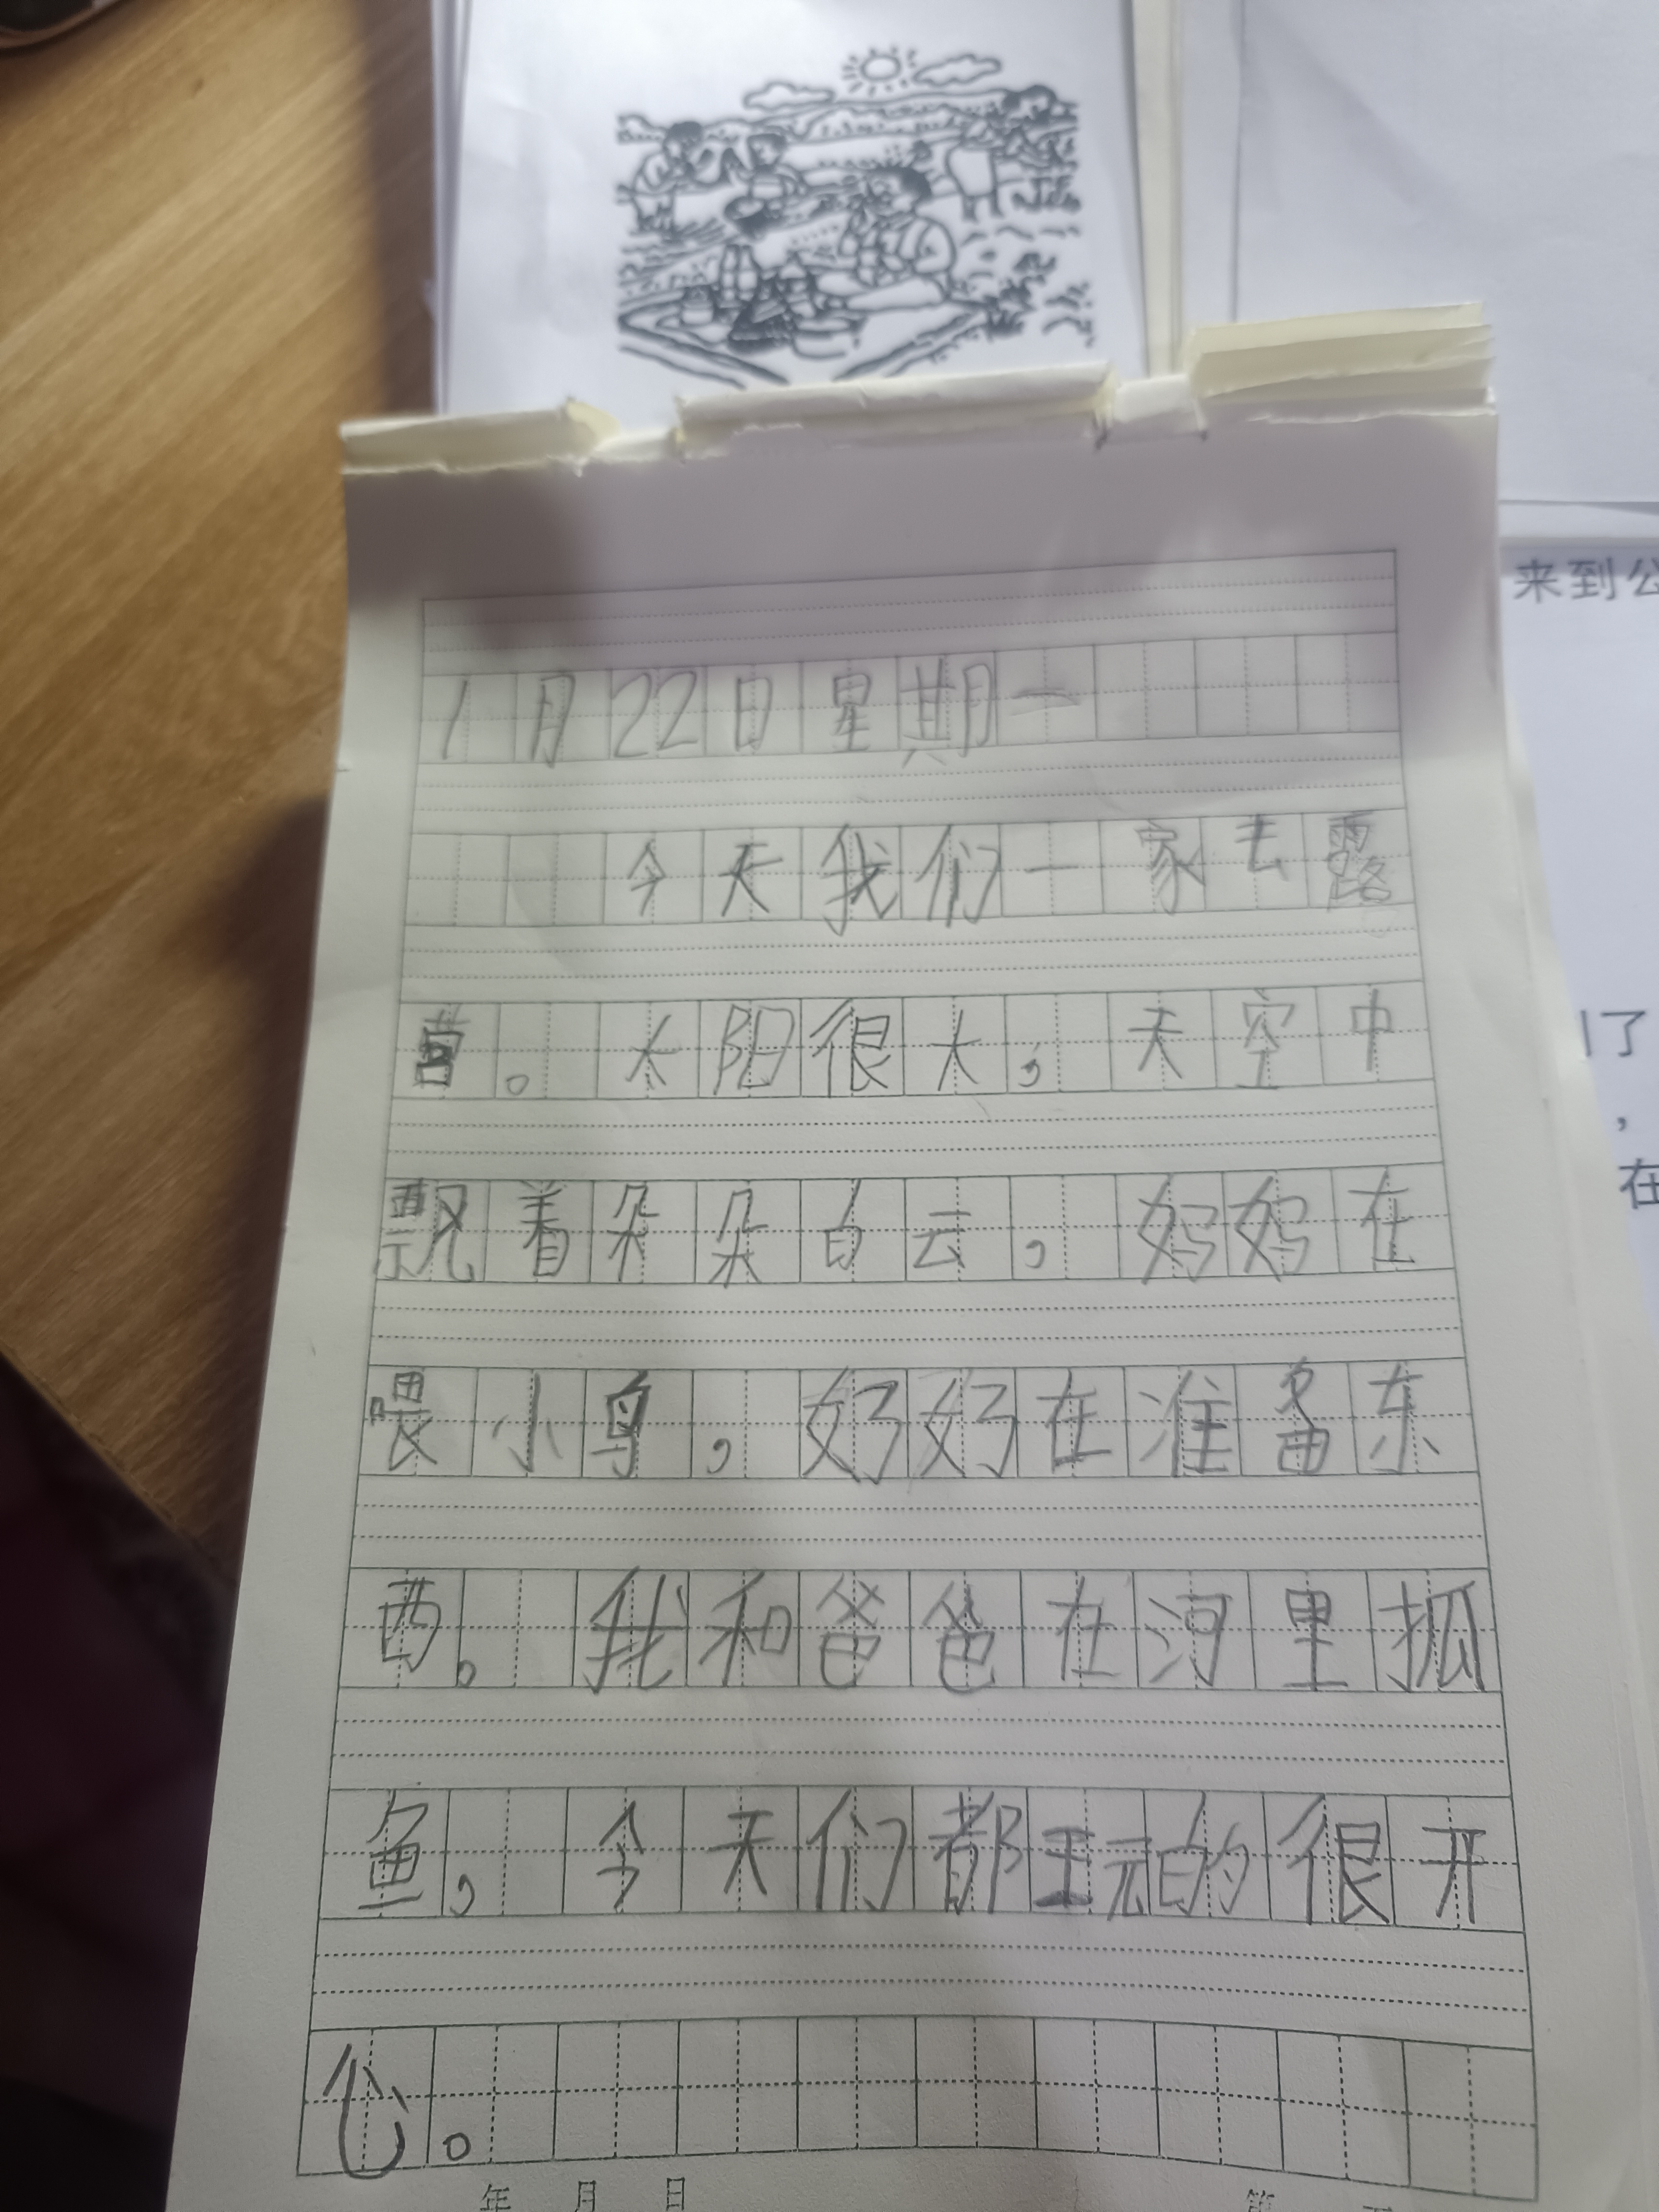 来到公
了
，
在
1月22日星期一
今天我们一家去露
营。太阳很大，天空中
飘着朵朵白云，妈妈在
喂小鸟，奶奶在准备东
西。我和爸爸在河里抓
鱼，今天们都玩的很开
心。
年 月 日